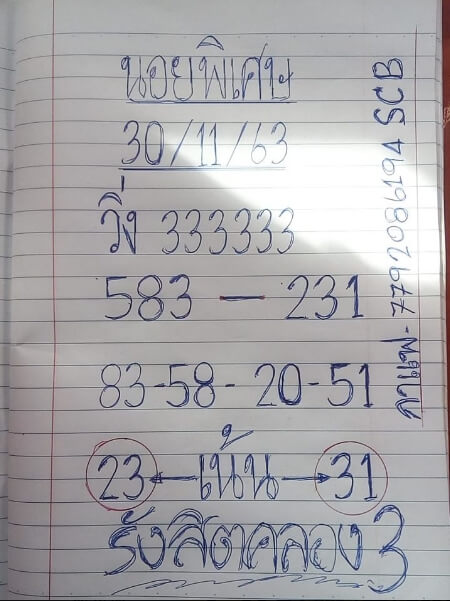 นอยพิเศษ
30/11/63
วิ่ง 333333
583 - 231
83-58-20-51
23 ← เน้น → 31
รังสิตคลอง 3
SCB